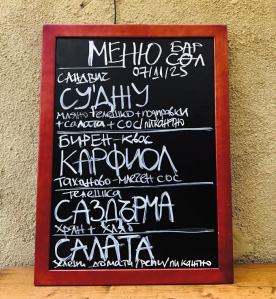 МЕНЮ БАР СОЛ
07/11/25
САНДВИЧ
СУДЖУ
МЛЯНО ТЕЛЕШКО + ПОДПРАВКИ
+ САЛАТА + СОС/ПИКАНТНО
БИРЕН-КВАС
КАРФИОЛ
ТАХАНОВО-МЛЕЧЕН СОС
ТЕЛЕШКА
САЗДЪРМА
ХРЯН + ХЛЯБ
САЛАТА
ЗЕЛЕНИ ДОМАТИ/РЕПИ/ПИКАНТНО